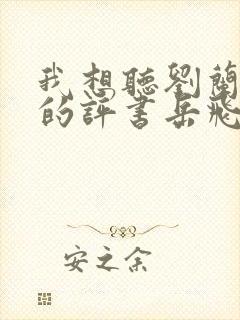 我想聽劉蘭
的評書岳飛
安之余